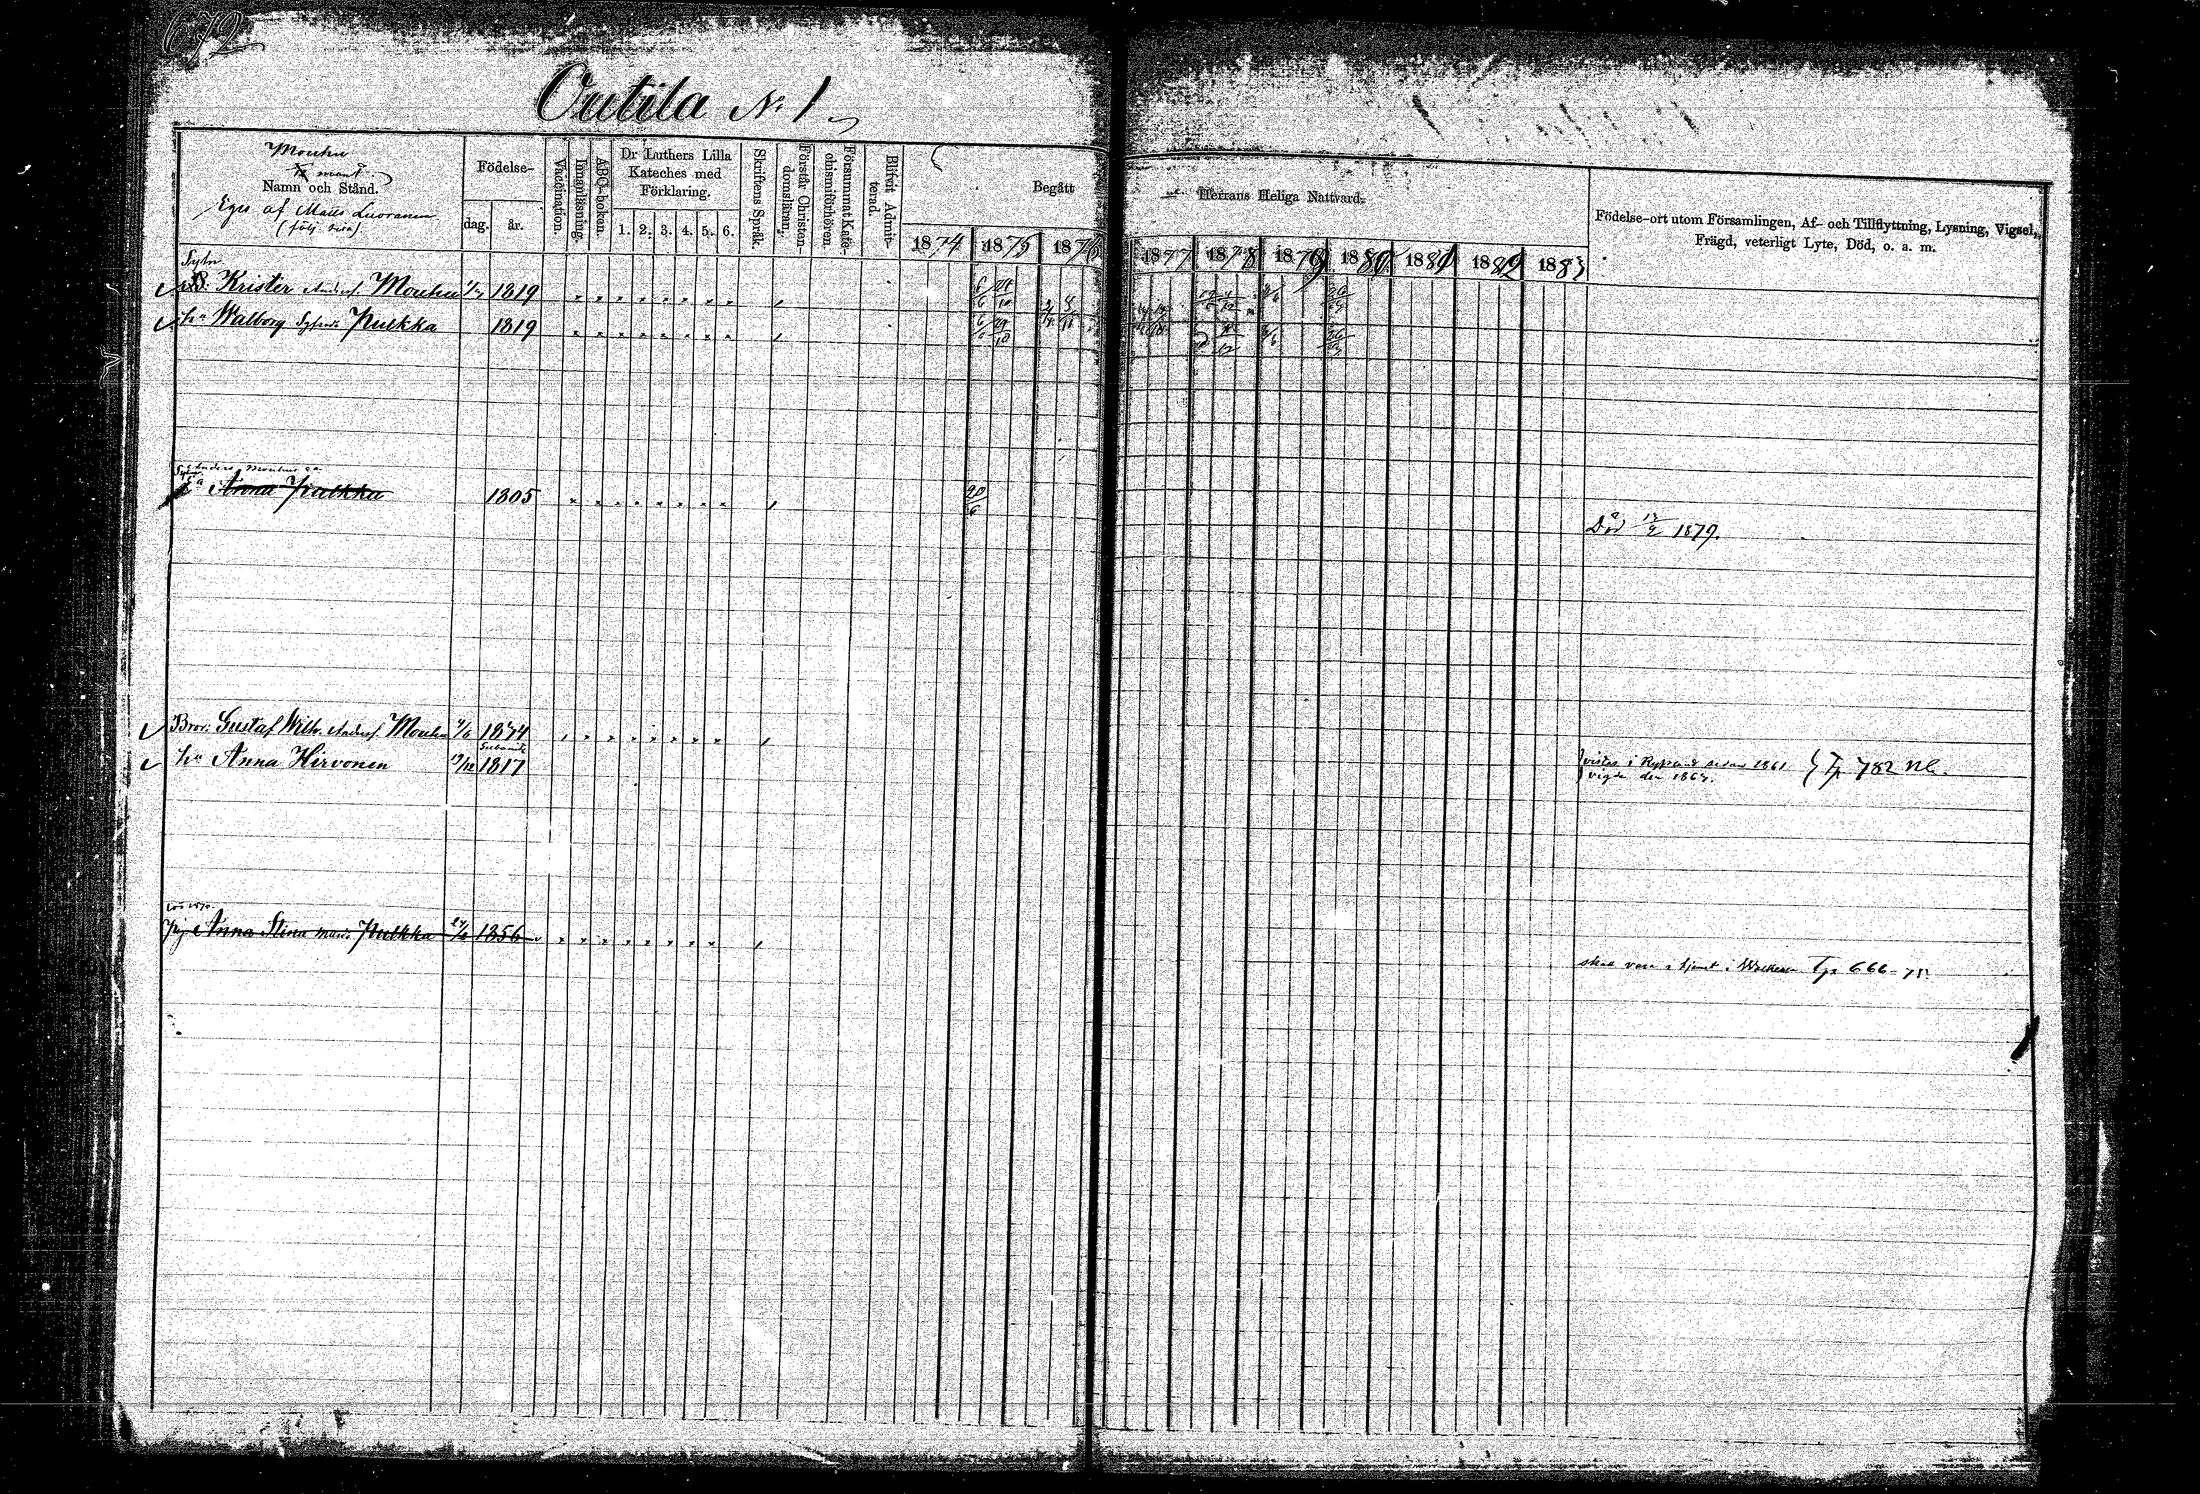 672
Outila No 1
Mouhu
mant.
Namn och Stånd.
Eges af Matts Luoranen
(följ. sida).
Födelse-
dag.
år.
Vaccination.
Innanläsning.
ABC-boken.
Dr Luthers Lilla
Kateches med
Förklaring.
1. 2. 3. 4. 5. 6.
Skriftens Språk.
Förstår Christen-
domsläran.
Försummat Kate-
chismiförhören.
Blifvit Admit-
terad.
Begått
Herrans Heliga Nattvard.
1874 1875 1876 1877 1878 1879 1880 1881 1882 1883
Födelse-ort utom Församlingen, Af- och Tillflyttning, Lysning, Vigsel,
Frägd, veterligt Lyte, Död, o. a. m.
Sytn
Krister Andersf. Mouhu 1819
hu Walborg Pulkka 1819
Anders Mouhus
Anna Pulkka 1805
Död 13/2 1879.
Bror. Gustaf Wilh. Andersf. Mouhu
hu Anna Hirvonen 19/12 1817
vistas i Ryssland sedan 1861
vigde den 1863.
Tp 782 nl.
Pig Anna Stina Pulkka 1856
skall vara i tjenst i Tp 666-75